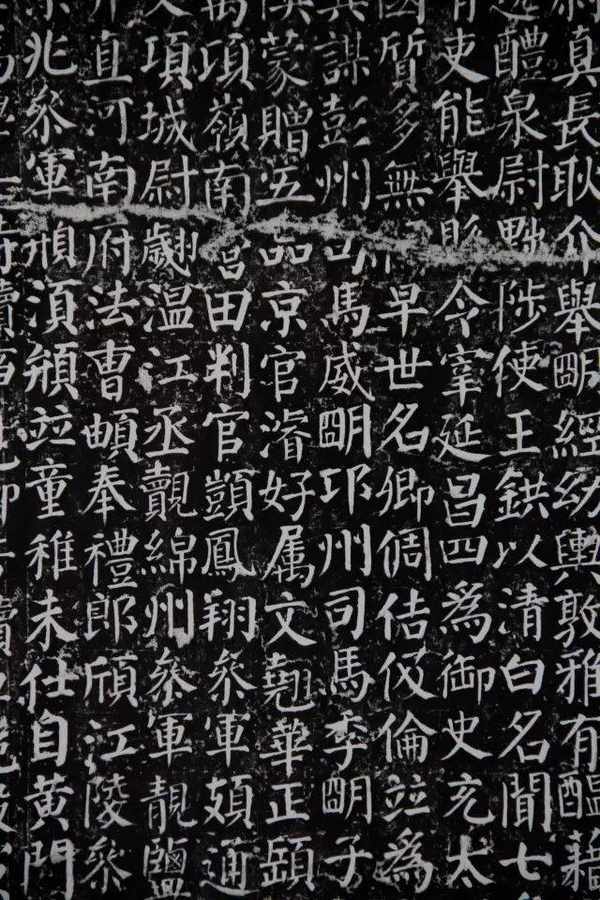 真長耿介舉眀經幼輿敦雅有醖藉
醴泉尉黜陟使王鉷以清白名聞七
吏能舉縣令宰延昌四為御史充太
國質多無早世名卿倜佶伋倫並為
謀彭州司馬威眀邛州司馬季眀子
蒙贈五品京官濬好属文翹華正顗
萬項嶺南營田判官顗鳳翔叅軍頗通
項城尉翽温江丞覿綿州叅軍靚鹽
直河南府法曹頔奉禮郎頎江陵叅
兆叅軍頍湏頲並童稚未仕自黄門